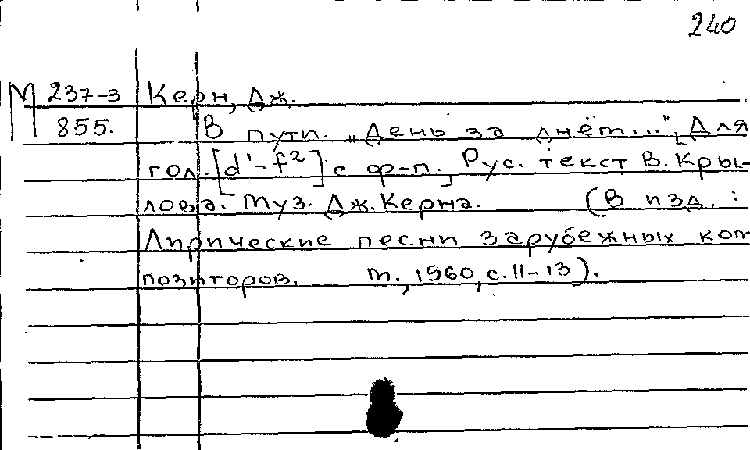 240
М 237-3 Керн, Дж.
855. В пути. „День за днём...", [Для
гол. [d'-f²] с ф-п.], Рус. текст В. Кры-
лова. Муз. Дж. Керна. (В изд.:
Лирические песни зарубежных ком
позиторов. М., 1960, с. 11-13).